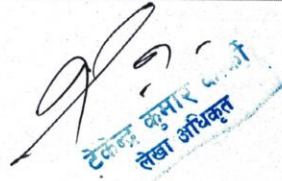 टेकेन्द्र कुमार
लेखा अधिकृत